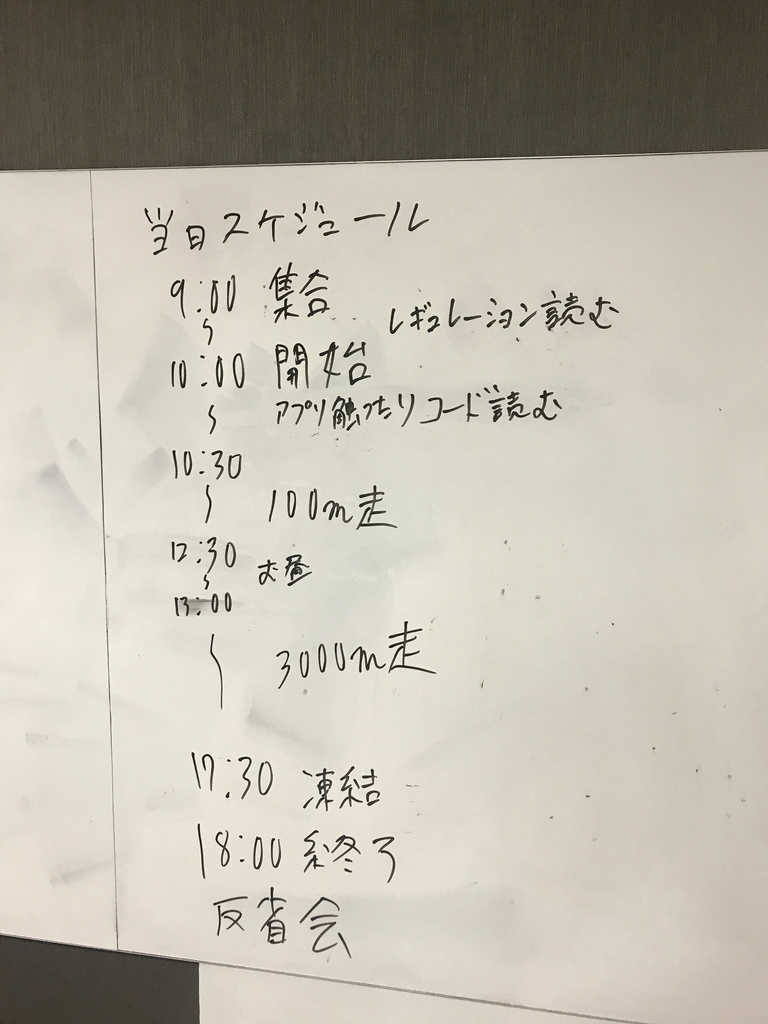 当日スケジュール
9:00 集合
〜 レギュレーション読む
10:00 開始
〜 アプリ触ったりコード読む
10:30
〜 100m走
12:30
〜 お昼
13:00
〜 3000m走
17:30 凍結
18:00 終了
反省会